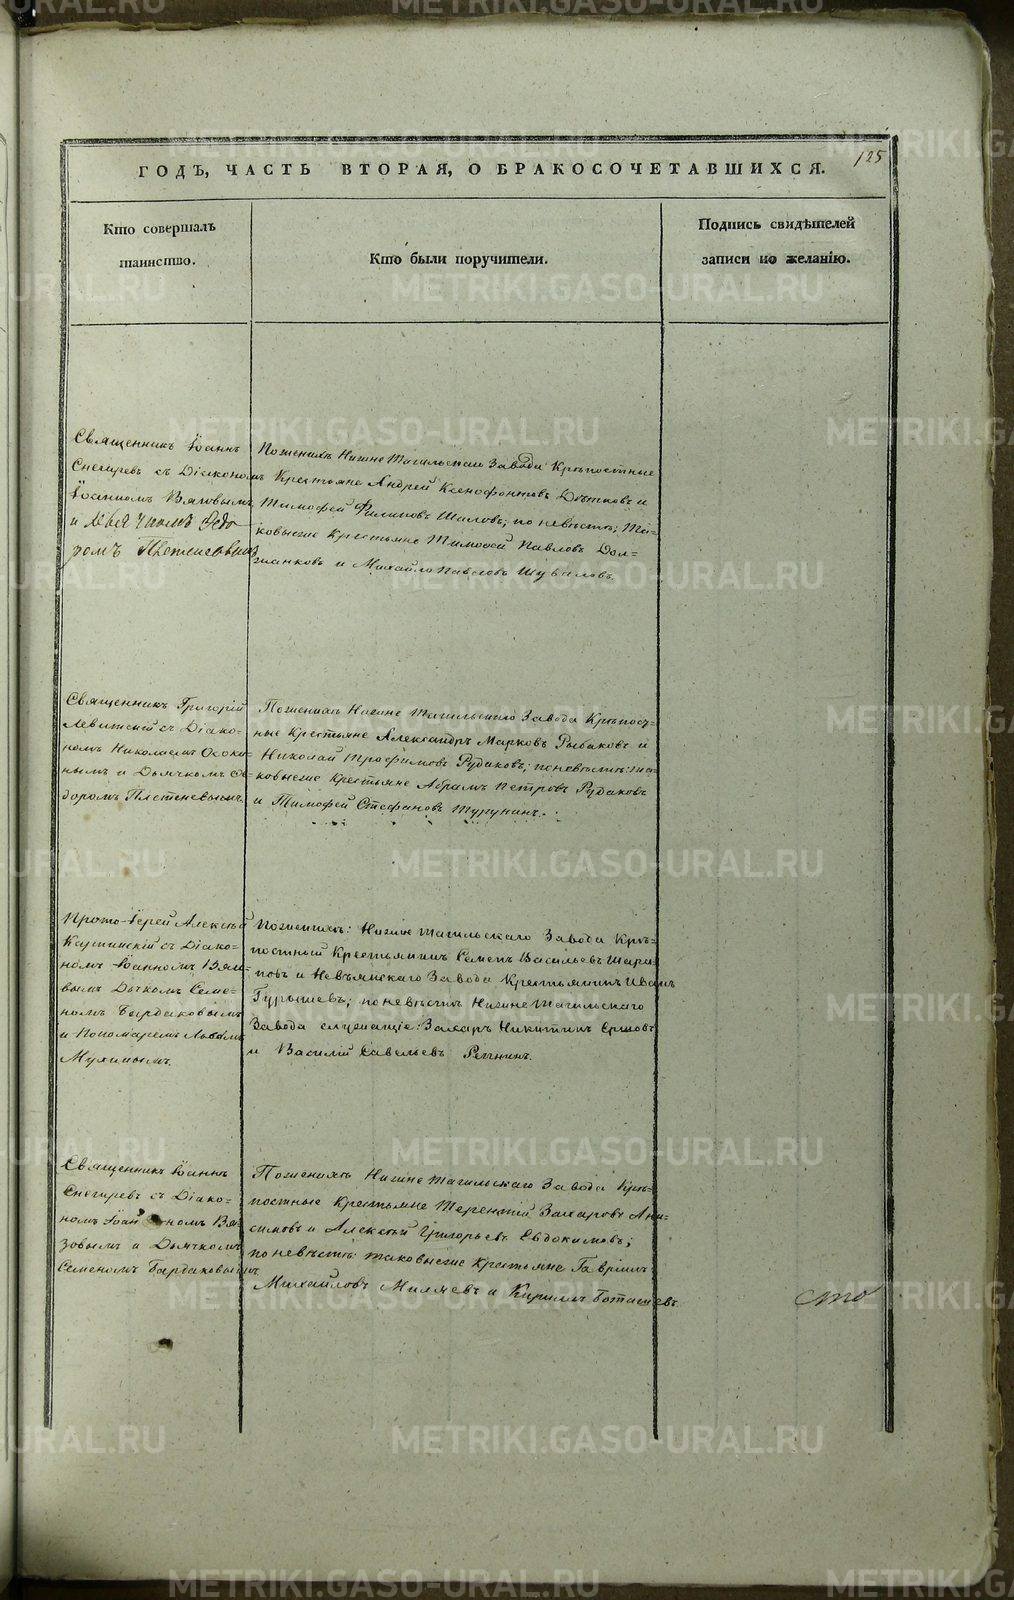 125
ГОДЪ, ЧАСТЬ ВТОРАЯ, О БРАКОСОЧЕТАВШИХСЯ.
Кто совершалъ
таинство.
Кто были поручители.
Подпись свидѣтелей
записи по желанію.
Священникъ Іоаннъ
Снегиревъ съ Діакономъ
Іоанномъ Вяловымъ
и
ромъ
По женихѣ Нижне Тагильскаго Завода Крѣпостные
Крестьяне Андрей Ксенофонтовъ и
Тимофей Филиповъ Шиловъ; по невѣстѣ; Та-
ковыеже Крестьяне Тимофей Павловъ Дол-
ганковъ и Михайло Павловъ Шуваловъ.
Священникъ Григорій
Левитскій съ Діако-
номъ Николаемъ Осоки-
нымъ и Дьячкомъ Ѳе-
доромъ Плетеневымъ.
По женихѣ Нижне Тагильскаго Завода Крѣпост-
ные Крестьяне Александръ Марковъ Рыбаковъ и
Николай Трофимовъ Рудаковъ; по невѣстѣ: та-
ковыеже Крестьяне Абрамъ Петровъ Рудаковъ
и Тимофей Стефановъ Турунинъ.
Прото-Іерей Алексѣй
Карпинскій съ Діако-
номъ Іоанномъ Вязо-
вымъ Дьячкомъ Семе-
номъ Бардаковымъ
и Пономаремъ Львомъ
Мухинымъ.
По женихѣ: Нижне Тагильскаго Завода Крѣ-
постный Крестьянинъ Семенъ Васильевъ Шари-
повъ и Невьянскаго Завода Крестьянинъ Иванъ
Гурышевъ; по невѣстѣ Нижне Тагильскаго
Завода служащіе: Захаръ Никитинъ Ершовъ
и Василій Савельевъ Репнинъ.
Священникъ Іоаннъ
Снегиревъ съ Діако-
номъ Іоанномъ Вя-
зовымъ и Дьячкомъ
Семеномъ Бардаковымъ
По женихѣ Нижне Тагильскаго Завода Крѣ-
постные Крестьяне Терентій Захаровъ Ани-
симовъ и Алексѣй Григорьевъ Евдокимовъ;
по невѣстѣ: таковыеже Крестьяне Гавріилъ
Михайловъ Миляевъ и Кирилъ Боташевъ
сто
METRIKI.GASO-URAL.RU